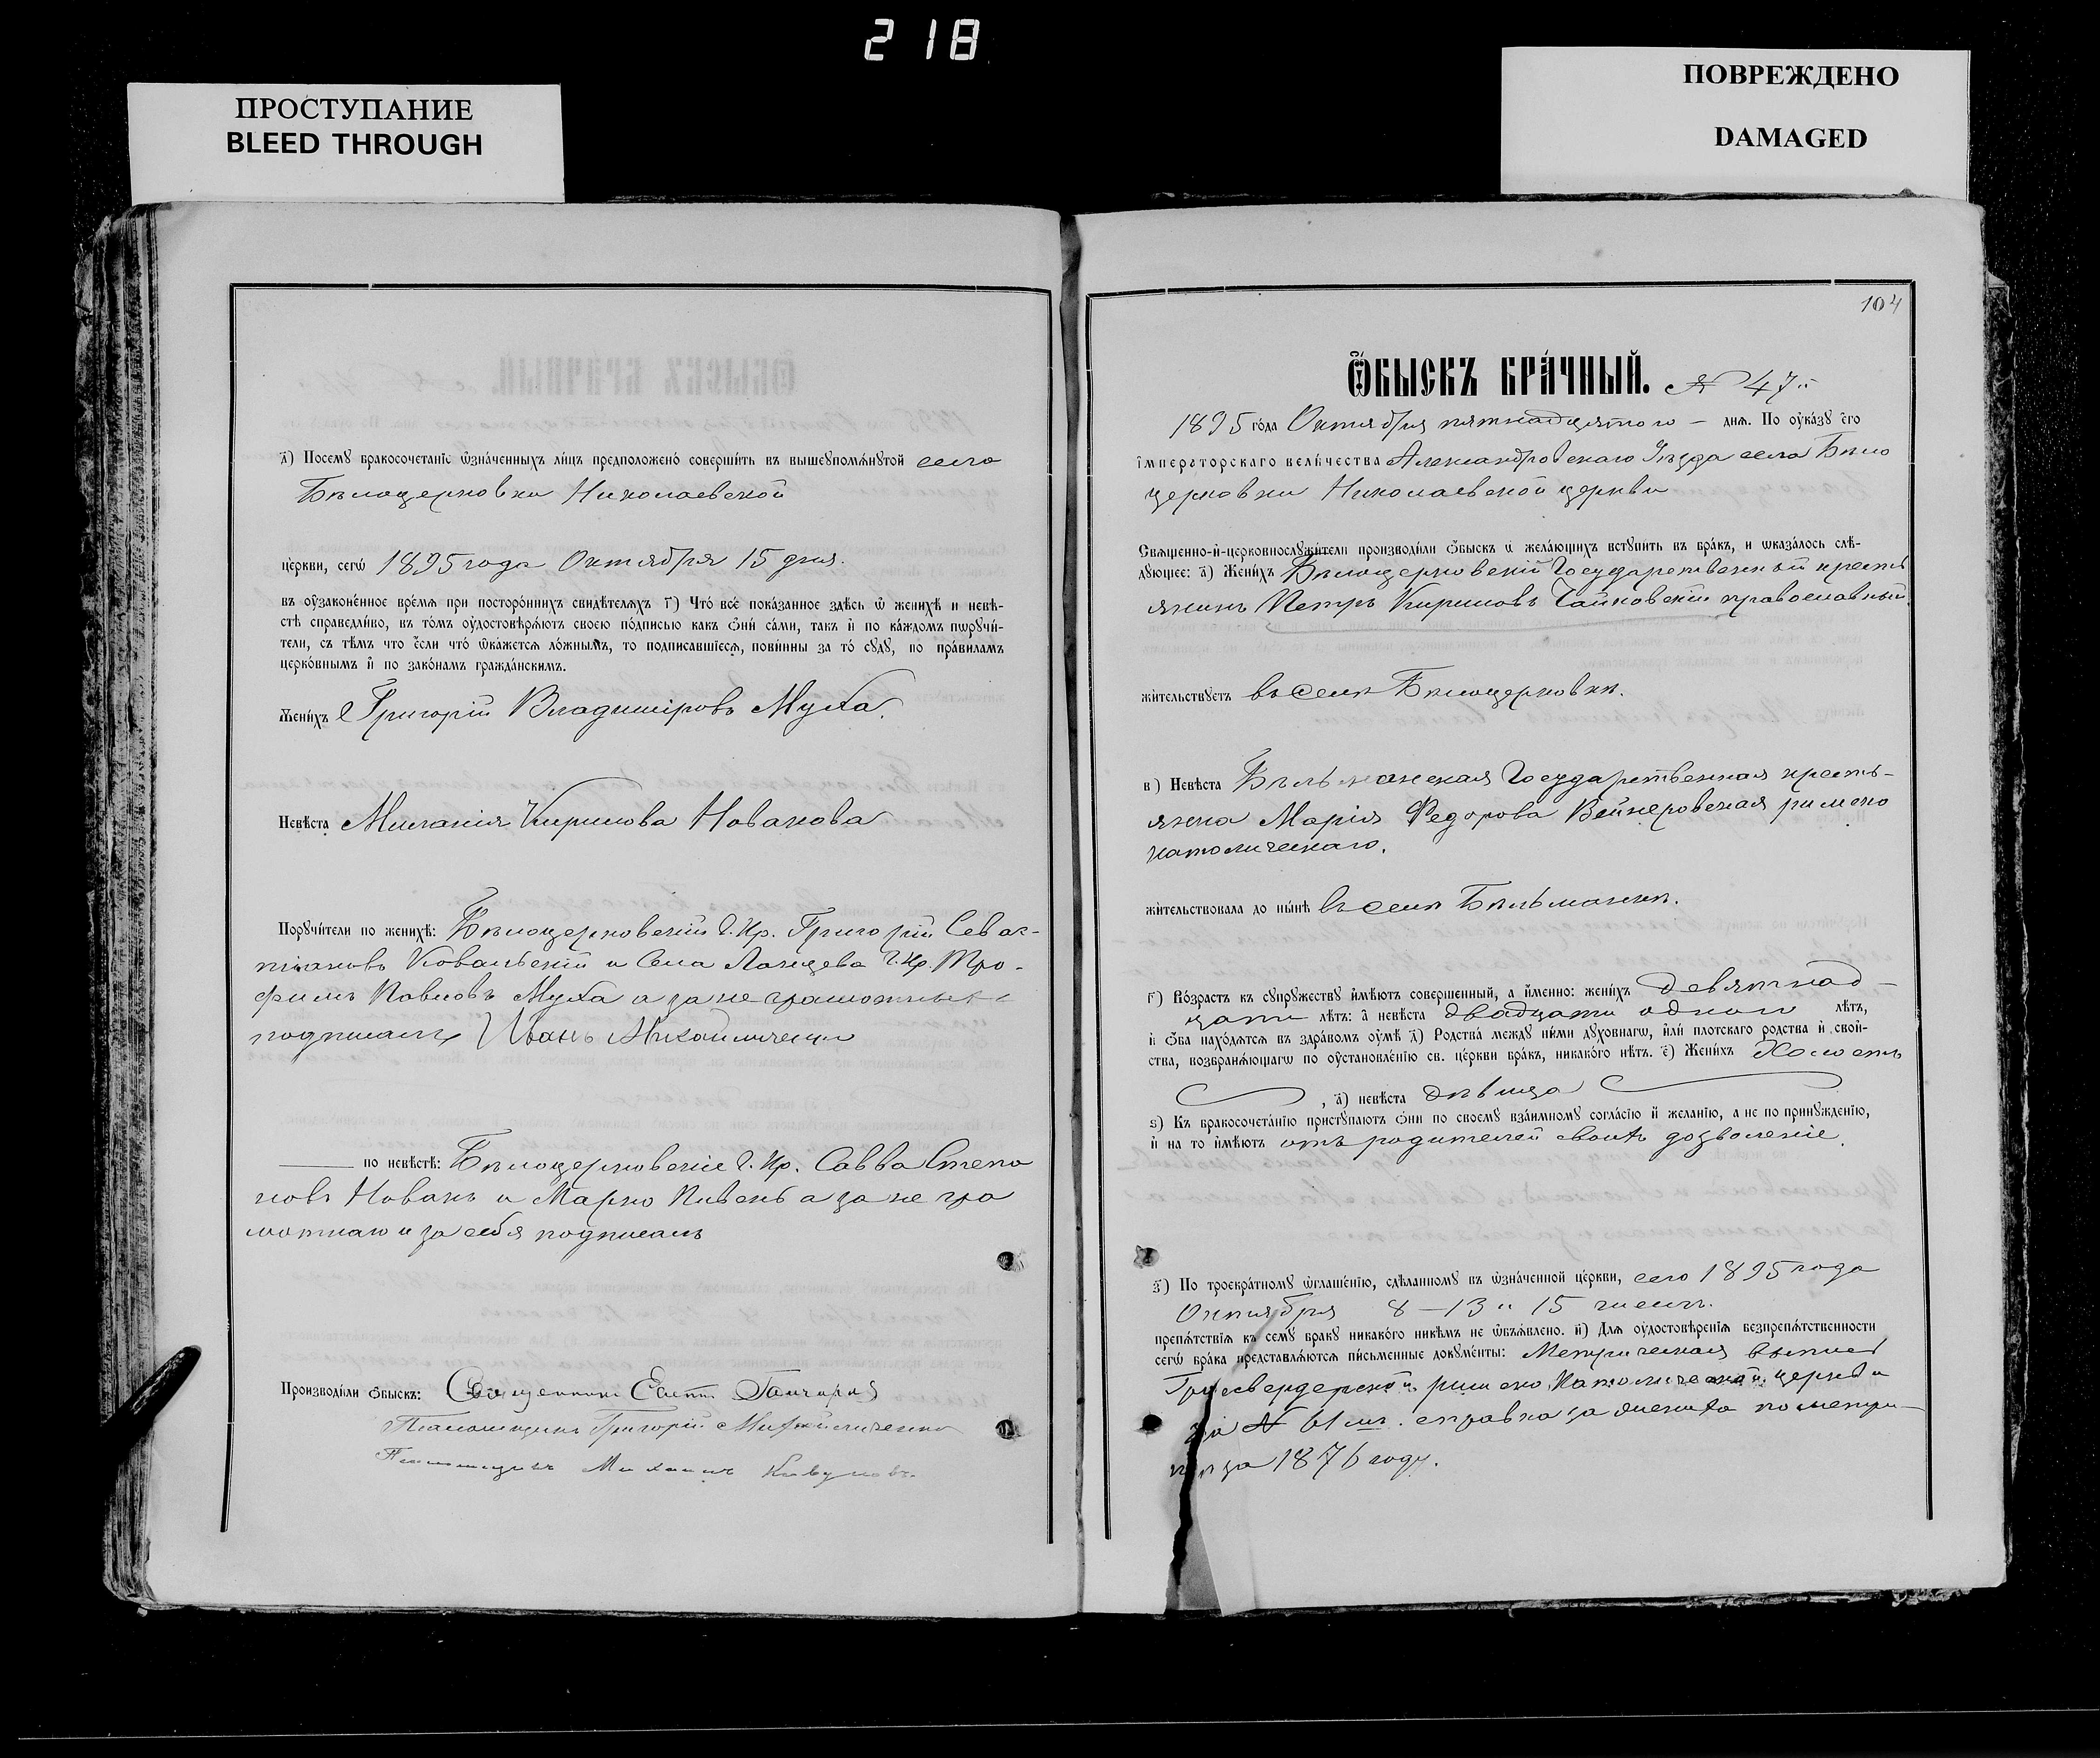 218
ПРОСТУПАНИЕ
BLEED THROUGH
ПОВРЕЖДЕНО
DAMAGED
з҃) Посемꙋ бракосочетанїе ѡзна́ченныхъ ли́цъ предположено̀ соверши́ть въ вышеꙋпомѧ́нꙋтой села
Бѣлоцерковки Николаевской
це́ркви, сегѡ̀ 1895 года Октября 15 дня.
въ ᲂу҆зако́ненное вре́мѧ при посторо́ннихъ свидѣ́телѧхъ г҃) Что̀ всѐ пока́занное здѣсь ѡ҆ женихѣ̀ и невѣ-
стѣ справедли́во, въ то́мъ ᲂу҆достовѣрѧ́ютъ своею по́дписью какъ ѻ҆нѝ са́ми, такъ и҆ по ка́ждомъ порꙋчи́-
тели, съ тѣ́мъ что є҆сли что̀ ѡ҆ка́жетсѧ ло́жнымъ, то подписавшїесѧ, пови́нны за то̀ сꙋдꙋ̀, по пра́виламъ
церко́внымъ и҆ по зако́намъ гражда́нскимъ.
Жени́хъ Григорій Владиміровъ Муха.
Невѣста Миланія Кирилова Новакова
Порꙋчи́тели по женихѣ̀: Бѣлоцерковскій Г. Кр. Григорій Севас-
тіановъ Ковальскій и Села Ланцева Г. Кр. Тро-
фимъ Павловъ Муха а за неграмотныхъ
подписалъ Иванъ Михайличенко
по невѣстѣ: Бѣлоцерковскіе Г. Кр. Савва Степа
новъ Новакъ и Марко Пивень а за не гра
мотнаго и за себя подписалъ
Производи́ли ѻ҆быскъ: Священникъ Гончаровъ
Псаломщикъ Григорій Михайличенко
Псаломщикъ Михаилъ
104
Ѻ҆БЫСКЪ БРА́ЧНЫЙ. № 47й
1895 го́да Октября пятнадцятого — днѧ. По ᲂу҆ка́зꙋ є҆гѡ̀
і҆мператорскаго вели́чества Александровскаго Уѣзда села Бѣло
церковки Николаевской церкви
Свѧщенно-и҆-церковнослꙋжи́тели производи́ли ѻ҆быскъ ѡ҆ жела́ющихъ встꙋпи́ть въ бра́къ, и ѡказа́лось слѣ́-
дꙋющее: а҃) Жени́хъ Бѣлоцерковскій Государственный кресть
янинъ Петръ Кириловъ Чайковскій православный.
жи́тельствꙋетъ въ Селѣ Бѣлоцерковки.
в҃) Невѣ́ста Бѣльманская Государственная кресть-
янка Марія Федорова Вейнеровская римско
католическаго.
жи́тельствовала до ны́нѣ въ Селѣ Бѣльманки.
г҃) Во́зрастъ къ сꙋпрꙋ́жествꙋ и҆мѣ́ютъ соверше́нный, а и҆́менно: жени́хъ девятнад-
цати лѣтъ: а҆ невѣста двадцати одного лѣтъ,
и҆ ѻ҆́ба нахо́дѧтсѧ въ здра́вомъ ᲂу҆мѣ̀ д҃) Родства̀ междꙋ ни́ми дꙋхо́внагѡ, и҆лѝ плотскаго родства и҆ сво́й-
ства, возбранѧ́ющагѡ по ᲂу҆становле́нїю св. це́ркви бра́къ, никако́го нѣ́тъ. є҃) Жени́хъ Холостъ
, а҆) невѣ́ста дѣвица
ѕ҃) Къ бракосочета́нїю пристꙋпа́ютъ ѻ҆нѝ по своемꙋ̀ взаи́мномꙋ согла́сїю и҆ жела́нїю, а не по принꙋжде́нїю,
и҆ на то и҆мѣ́ютъ отъ родителей своихъ дозволеніе.
з҃) По троекра́тномꙋ ѡ҆глаше́нїю, сдѣ́ланномꙋ въ ѡ҆зна́ченной це́ркви, сего 1895 года
Октября 8–13 и 15 чиселъ.
препѧ́тствїѧ къ семꙋ̀ бракꙋ никако́го никѣ́мъ не ѡ҆бъѧ́влено. и҃) Для ᲂу҆достовѣ́ренїѧ безпрепѧ́тственности
сегѡ̀ бра́ка представлѧ́ютсѧ пи́сьменные докꙋме́нты: Метрическая выпись
римско Католической церкви
за № 61м. справка за жениха по метри-
кѣ за 1876 году.